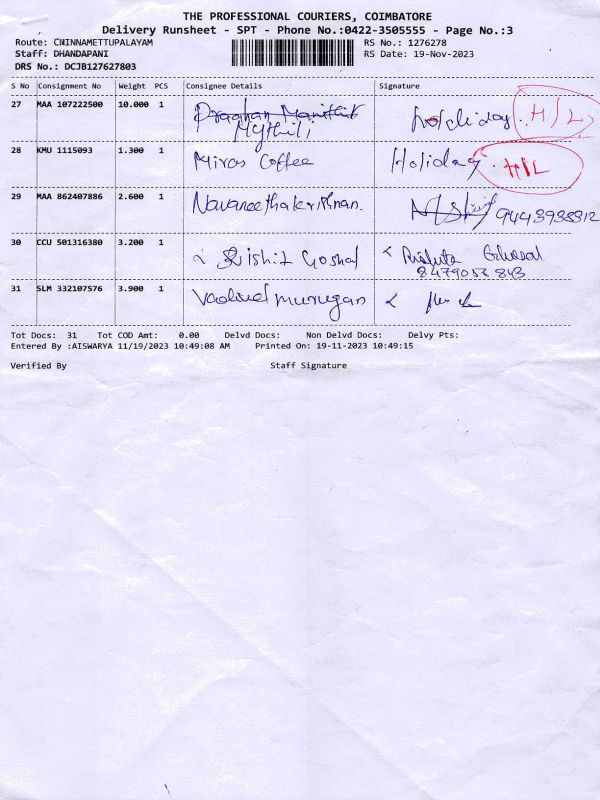 THE PROFESSIONAL COURIERS, COIMBATORE
Delivery Runsheet - SPT - Phone No.:0422-3505555 - Page No.:3
Route: CHINNAMETTUPALAYAM RS No.: 1276278
Staff: DHANDAPANI RS Date: 19-Nov-2023
DRS No.: DCJB127627803
S No Consignment No Weight PCS Consignee Details Signature
27 MAA 107222500 10.000 1 Holiday. H/L
Mythili
28 KMU 1115093 1.300 1 Miros Coffee Holiday. H/L
29 MAA 862407886 2.600 1 Navaneethakrishnan.
30 CCU 501316380 3.200 1 Rishit Goshal Ghosal
8479056843
31 SLM 332107576 3.900 1 Vadivel murugan
Tot Docs: 31 Tot COD Amt: 0.00 Delvd Docs: Non Delvd Docs: Delvy Pts:
Entered By :AISWARYA 11/19/2023 10:49:08 AM Printed On: 19-11-2023 10:49:15
Verified By Staff Signature